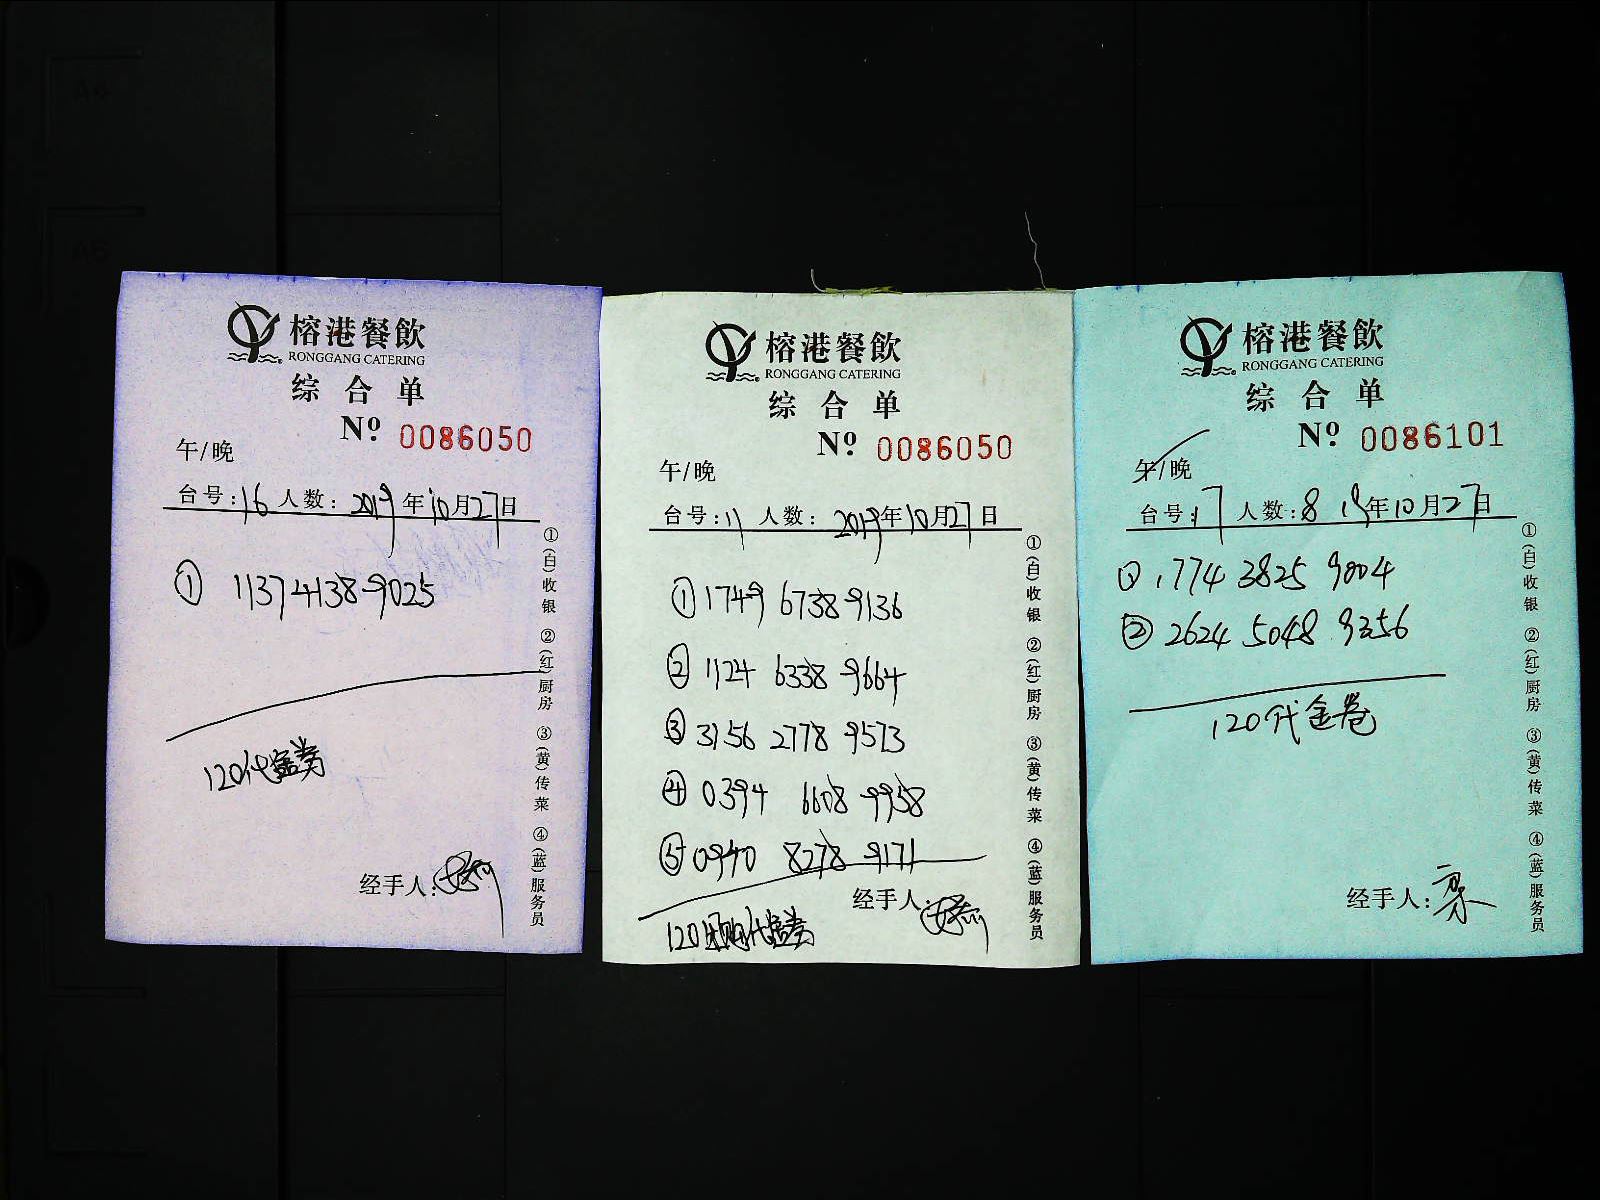 榕港餐飲
RONGGANG CATERING
综合单
Nº 0086050
午/晚
台号:16 人数: 2019年10月27日
① 1137 4138 9025
120代金券
经手人:
①(白)收银 ②(红)厨房 ③(黄)传菜 ④(蓝)服务员
榕港餐飲
RONGGANG CATERING
综合单
Nº 0086050
午/晚
台号:11 人数: 2019年10月27日
① 1749 6738 9136
② 1124 6338 9664
③ 3156 2778 9573
④ 0394 6608 9958
⑤ 0940 8278 9171
120团购代金券
经手人:
①(白)收银 ②(红)厨房 ③(黄)传菜 ④(蓝)服务员
榕港餐飲
RONGGANG CATERING
综合单
Nº 0086101
午/晚
台号:17 人数:8 19年10月27日
① 1774 3825 9004
② 2624 5048 9356
120代金卷
经手人:
①(白)收银 ②(红)厨房 ③(黄)传菜 ④(蓝)服务员